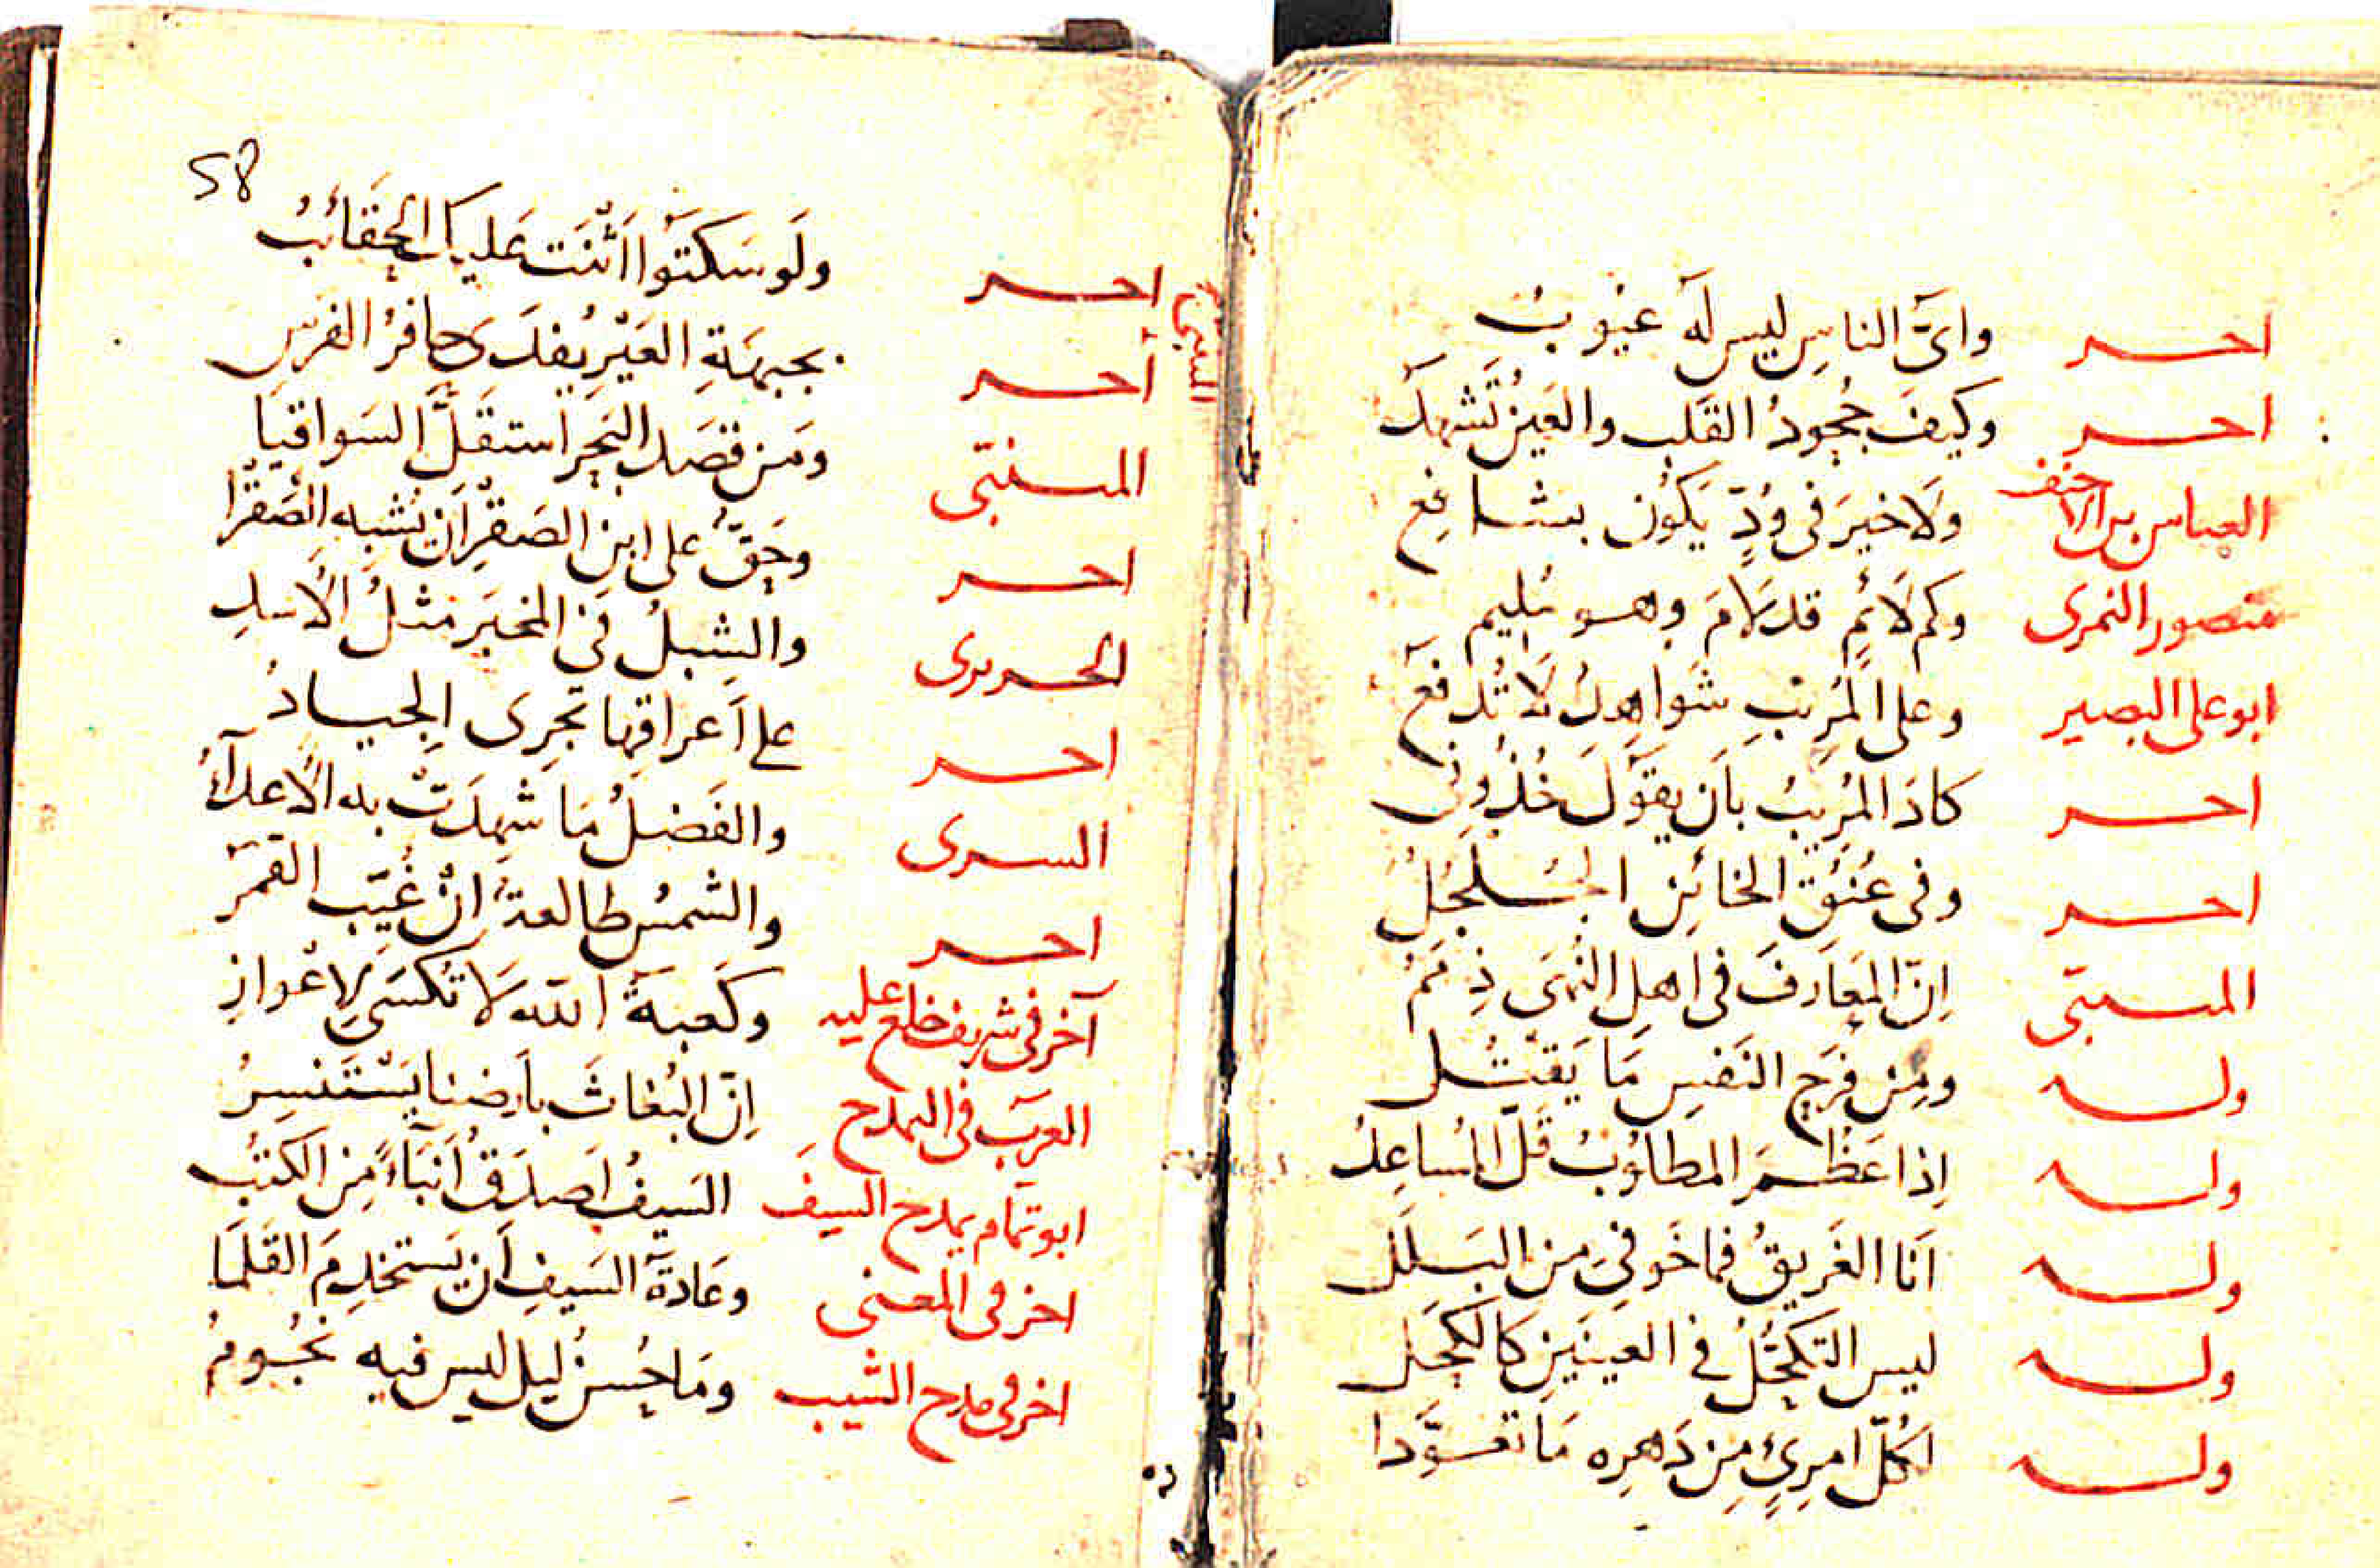 اخر وايُّ الناسِ ليس لَهُ عيُوبُ
اخر وكيفَ جُحودُ القَلبِ والعَينُ تَشهدُ
العباس بن الاحنف ولَا خيرَ في وُدٍّ يَكُون بشافِعِ
منصور النمرى وكم لَائمٍ قد لَامَ وهو مُليم
ابو على البصير وعلى المُريبِ شَواهِدٌ لَا تُدفَعُ
اخر كادَ المُرِيبُ بأن يقُولَ خُذُونى
اخر وفى عُنُقِ الخائنِ الجُلجُلُ
المتنبّى اِنّ المَعَارفَ فى اهلِ النُهَى ذِمَمُ
وله ومِن فَرَحِ النَفسِ مَا يَقتُل
وله اِذا عَظُمَ المطلوُبُ قَلّ المُساعِدُ
وله اَنا الغَريقُ فما خَوفى مِن البَلَلِ
وله ليس التَكحُّلُ في العينَينِ كالكَحَلِ
وله لكلّ امرِئٍ مِن دَهرِه مَا تعَوَّدا
58
اخر ولَو سَكتَوُا اَثنَت عَليك الحقَائبُ
اخر بجبهَةِ العَيْرِ يُفدَى حافرُ الفرَسِ
المتنبّى ومَن قصَد البَحرَ استقَلَّ السَواقيَا
اخر وحَقٌّ على ابنِ الصَقرِ اَن يُشبِه الصَقرَا
الحريرى والشِبلُ في المَخبَرِ مثلُ الاَسدِ
اخر على اَعراقِها تَجرِى الجيادُ
السرى والفَضلُ مَا شَهِدَتْ به الاَعدآءُ
اخر والشمسُ طالعةٌ اِنْ غُيّبَ القمَرُ
آخر فى شريف خلع عليه وكَعبةُ الله لَا تُكسَى لِاِعْوازِ
العرَب فى المدح اِنّ البُغاثَ بأرضنا يَسْتَنسِرُ
ابو تمام يمدح السيفَ السَيفُ اَصدَقُ اَنبَاءً مِن الكتُبِ
اخر فى المعنى وعَادَةُ السَيفِ اَن يَستخدِمَ القَلَمَا
اخر فى مدح الشيب ومَا حُسنُ ليل ليس فيه نجُومُ